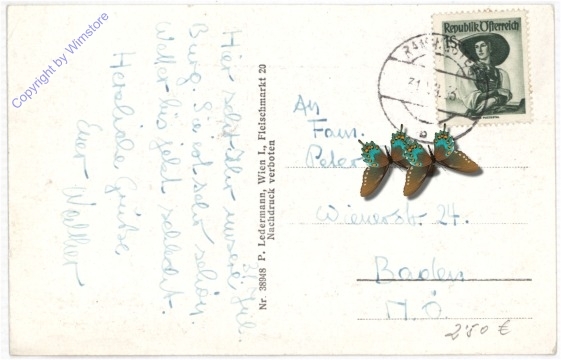 Copyright by Wimstore
Hier seht Ihr unsere
Burg. Sie ist sehr schön.
Wetter bis jetzt schlecht.
Herzliche Grüße
Euer Walther
Nr. 38948 P. Ledermann, Wien I., Fleischmarkt 20
Nachdruck verboten
Republik Österreich
An
Fam.
Peter
Wienerstr. 24.
Baden
N.Ö.
2'50 €